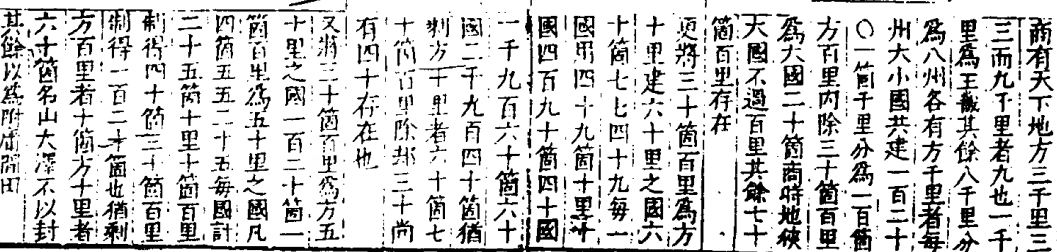 商有天下地方三千里三
三而九千里者九也一千
里爲王畿其餘八千里分
爲八州各有方千里者每
州大小國共建一百二十
〇一箇千里分爲一百箇
方百里內除三十箇百里
爲大國二十箇商時地狹
大國不過百里其餘七十
箇百里存在
更將三十箇百里爲方
十里建六十里之國六
十箇七七四十九每一
國用四十九箇十里十
國四百九十箇四十國
一千九百六十箇六十
國二千九百四十箇猶
剩方十里者六十箇七
十箇百里除却三十尚
有四十存在也
又將三十箇百里爲方五
十里之國一百二十箇一
箇百里爲五十里之國凡
四箇五五二十五每國計
二十五箇十里十箇百里
制得四十箇三十箇百里
制得一百二十箇也猶剩
方百里者十箇方十里者
六十箇名山大澤不以封
其餘以爲附庸閒田